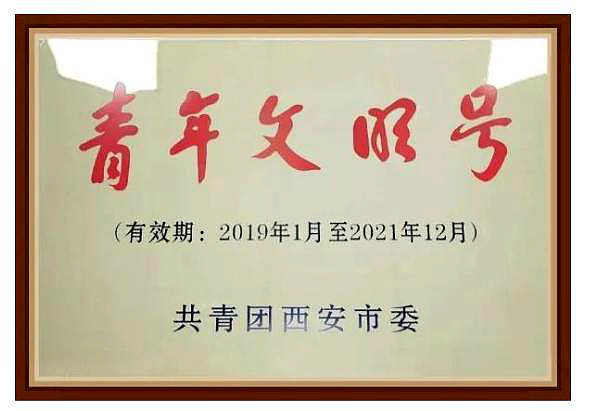 青年文明号
(有效期：2019年1月至2021年12月)
共青团西安市委